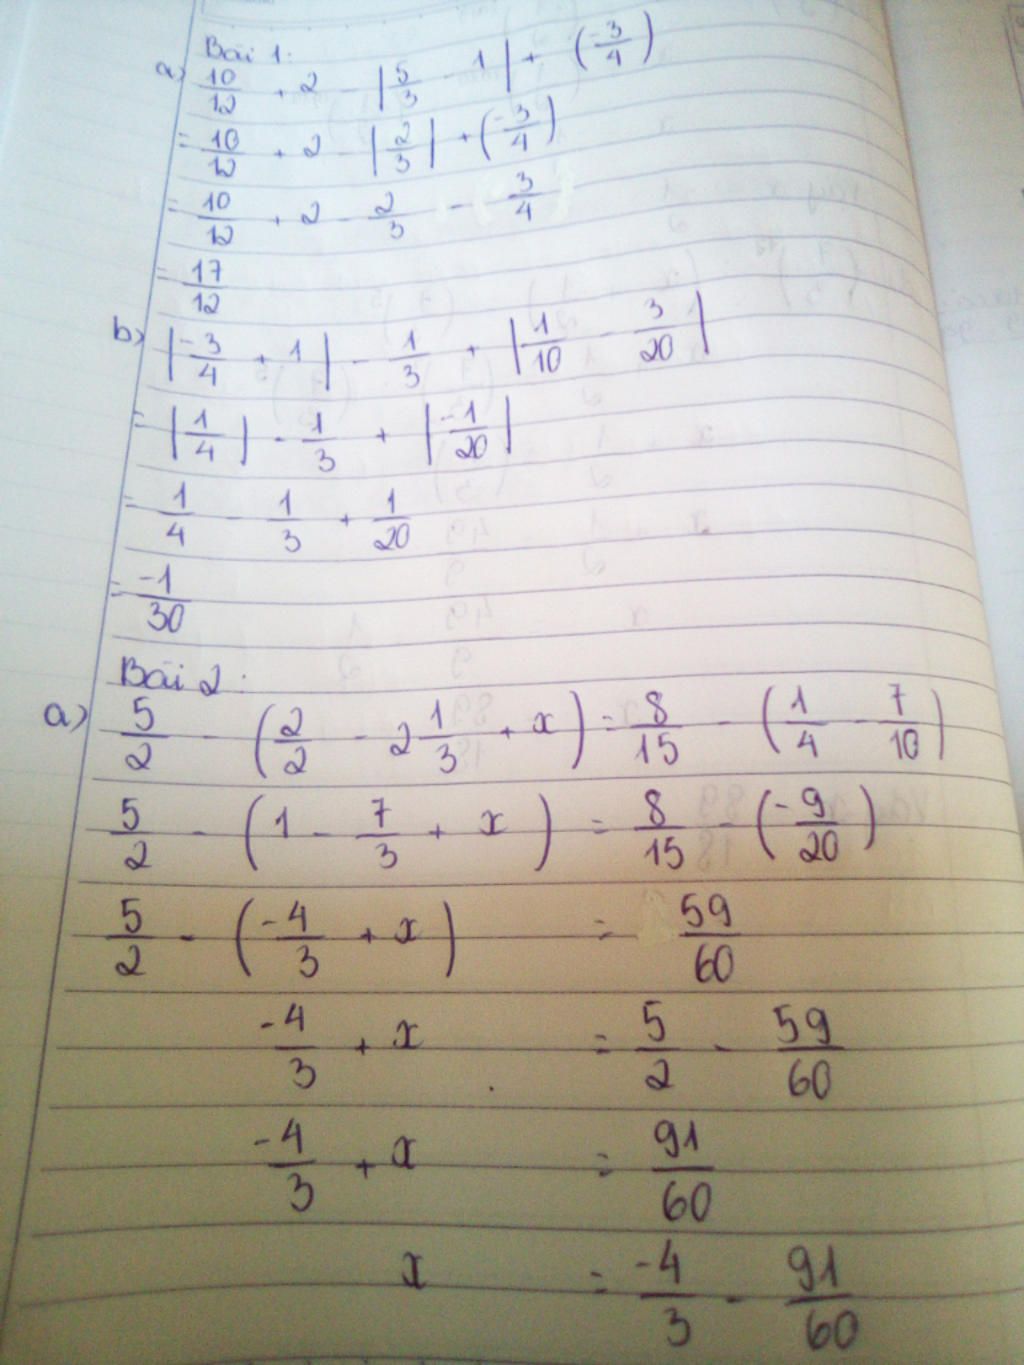 Bài 1:
a) 10/12 + 2 - |5/3 - 1| + (-3/4)
= 10/12 + 2 - |2/3| + (-3/4)
= 10/12 + 2 - 2/3 - 3/4
= 17/12
b) |-3/4 + 1| - 1/3 + |1/10 - 3/20|
= |1/4| - 1/3 + |-1/20|
= 1/4 - 1/3 + 1/20
= -1/30
Bài 2:
a) 5/2 - (2/2 - 2 1/3 + x) = 8/15 - (1/4 - 7/10)
5/2 - (1 - 7/3 + x) = 8/15 - (-9/20)
5/2 - (-4/3 + x) = 59/60
-4/3 + x = 5/2 - 59/60
-4/3 + x = 91/60
x = -4/3 - 91/60